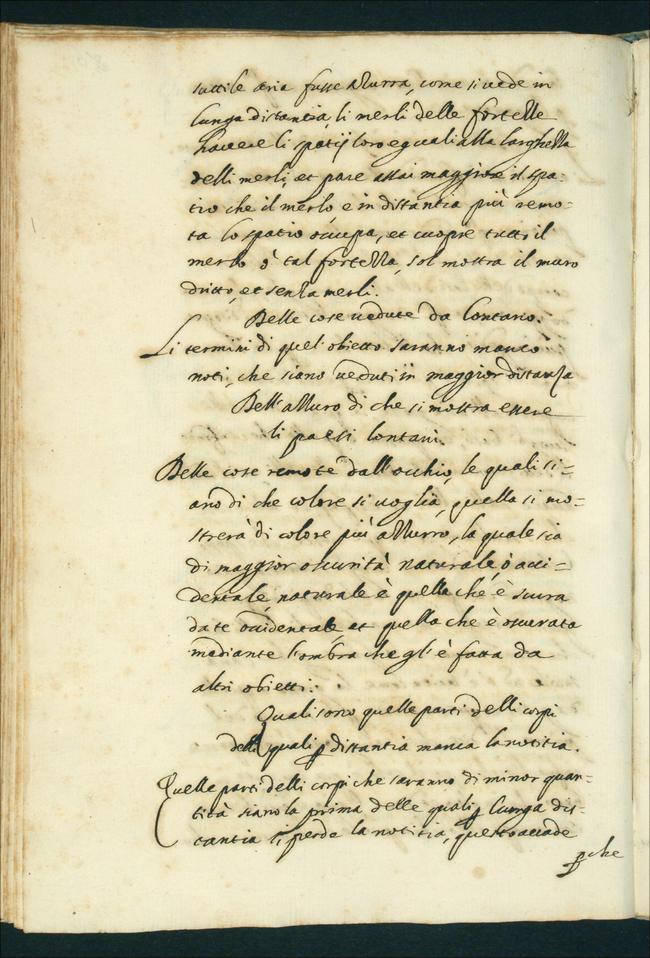 suttile aria fusse azzurra, come si vede in
lunga distantia, li merli delle fortezze
havere li spatij loro eguali alla larghezza
delli merli, et pare assai maggiore il spa-
tio che il merlo, e in distantia più remo-
ta lo spatio occupa, et cuopre tutto il
merlo è tal fortezza, sol mostra il muro
dritto, et senza merli.
Delle cose vedute da lontano.
Li termini di quel obietto saranno manco
noti, che siano veduti in maggior distanza
Dell'azzuro di che si mostra essere
li paesi lontani.
Delle cose remote dall'occhio, le quali si-
ano di che colore si voglia, quella si mo-
strerà di colore più azzurro, la quale sia
di maggior oscurità naturale, ò acci-
dentale, naturale è quella che è scura
da te accidentale, et quella che è oscurata
mediante l'ombra che gl'è fatta da
altri obietti.
Quali sono quelle parti delli corpi
delle quali p distantia manca la notitia.
Quelle parti delli corpi che saranno di minor quan-
tità siano la prima delle quali p lunga dis-
tantia si perde la notitia, questo accade
p che